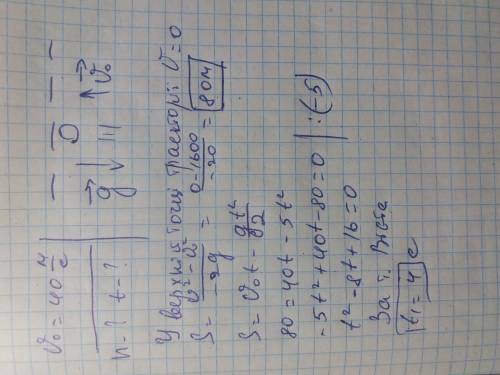 v₀ = 40 м/с
h - ? t - ?
g⃗ ↓ ↑ v⃗₀
У верхній точці траєкторії v = 0
S = (v² - v₀²)/(-2g) = (0 - 1600)/(-20) = 80м
S = v₀t - gt²/2
80 = 40t - 5t²
-5t² + 40t - 80 = 0 | : (-5)
t² - 8t + 16 = 0
За т. Вієта
t₁ = 4 с